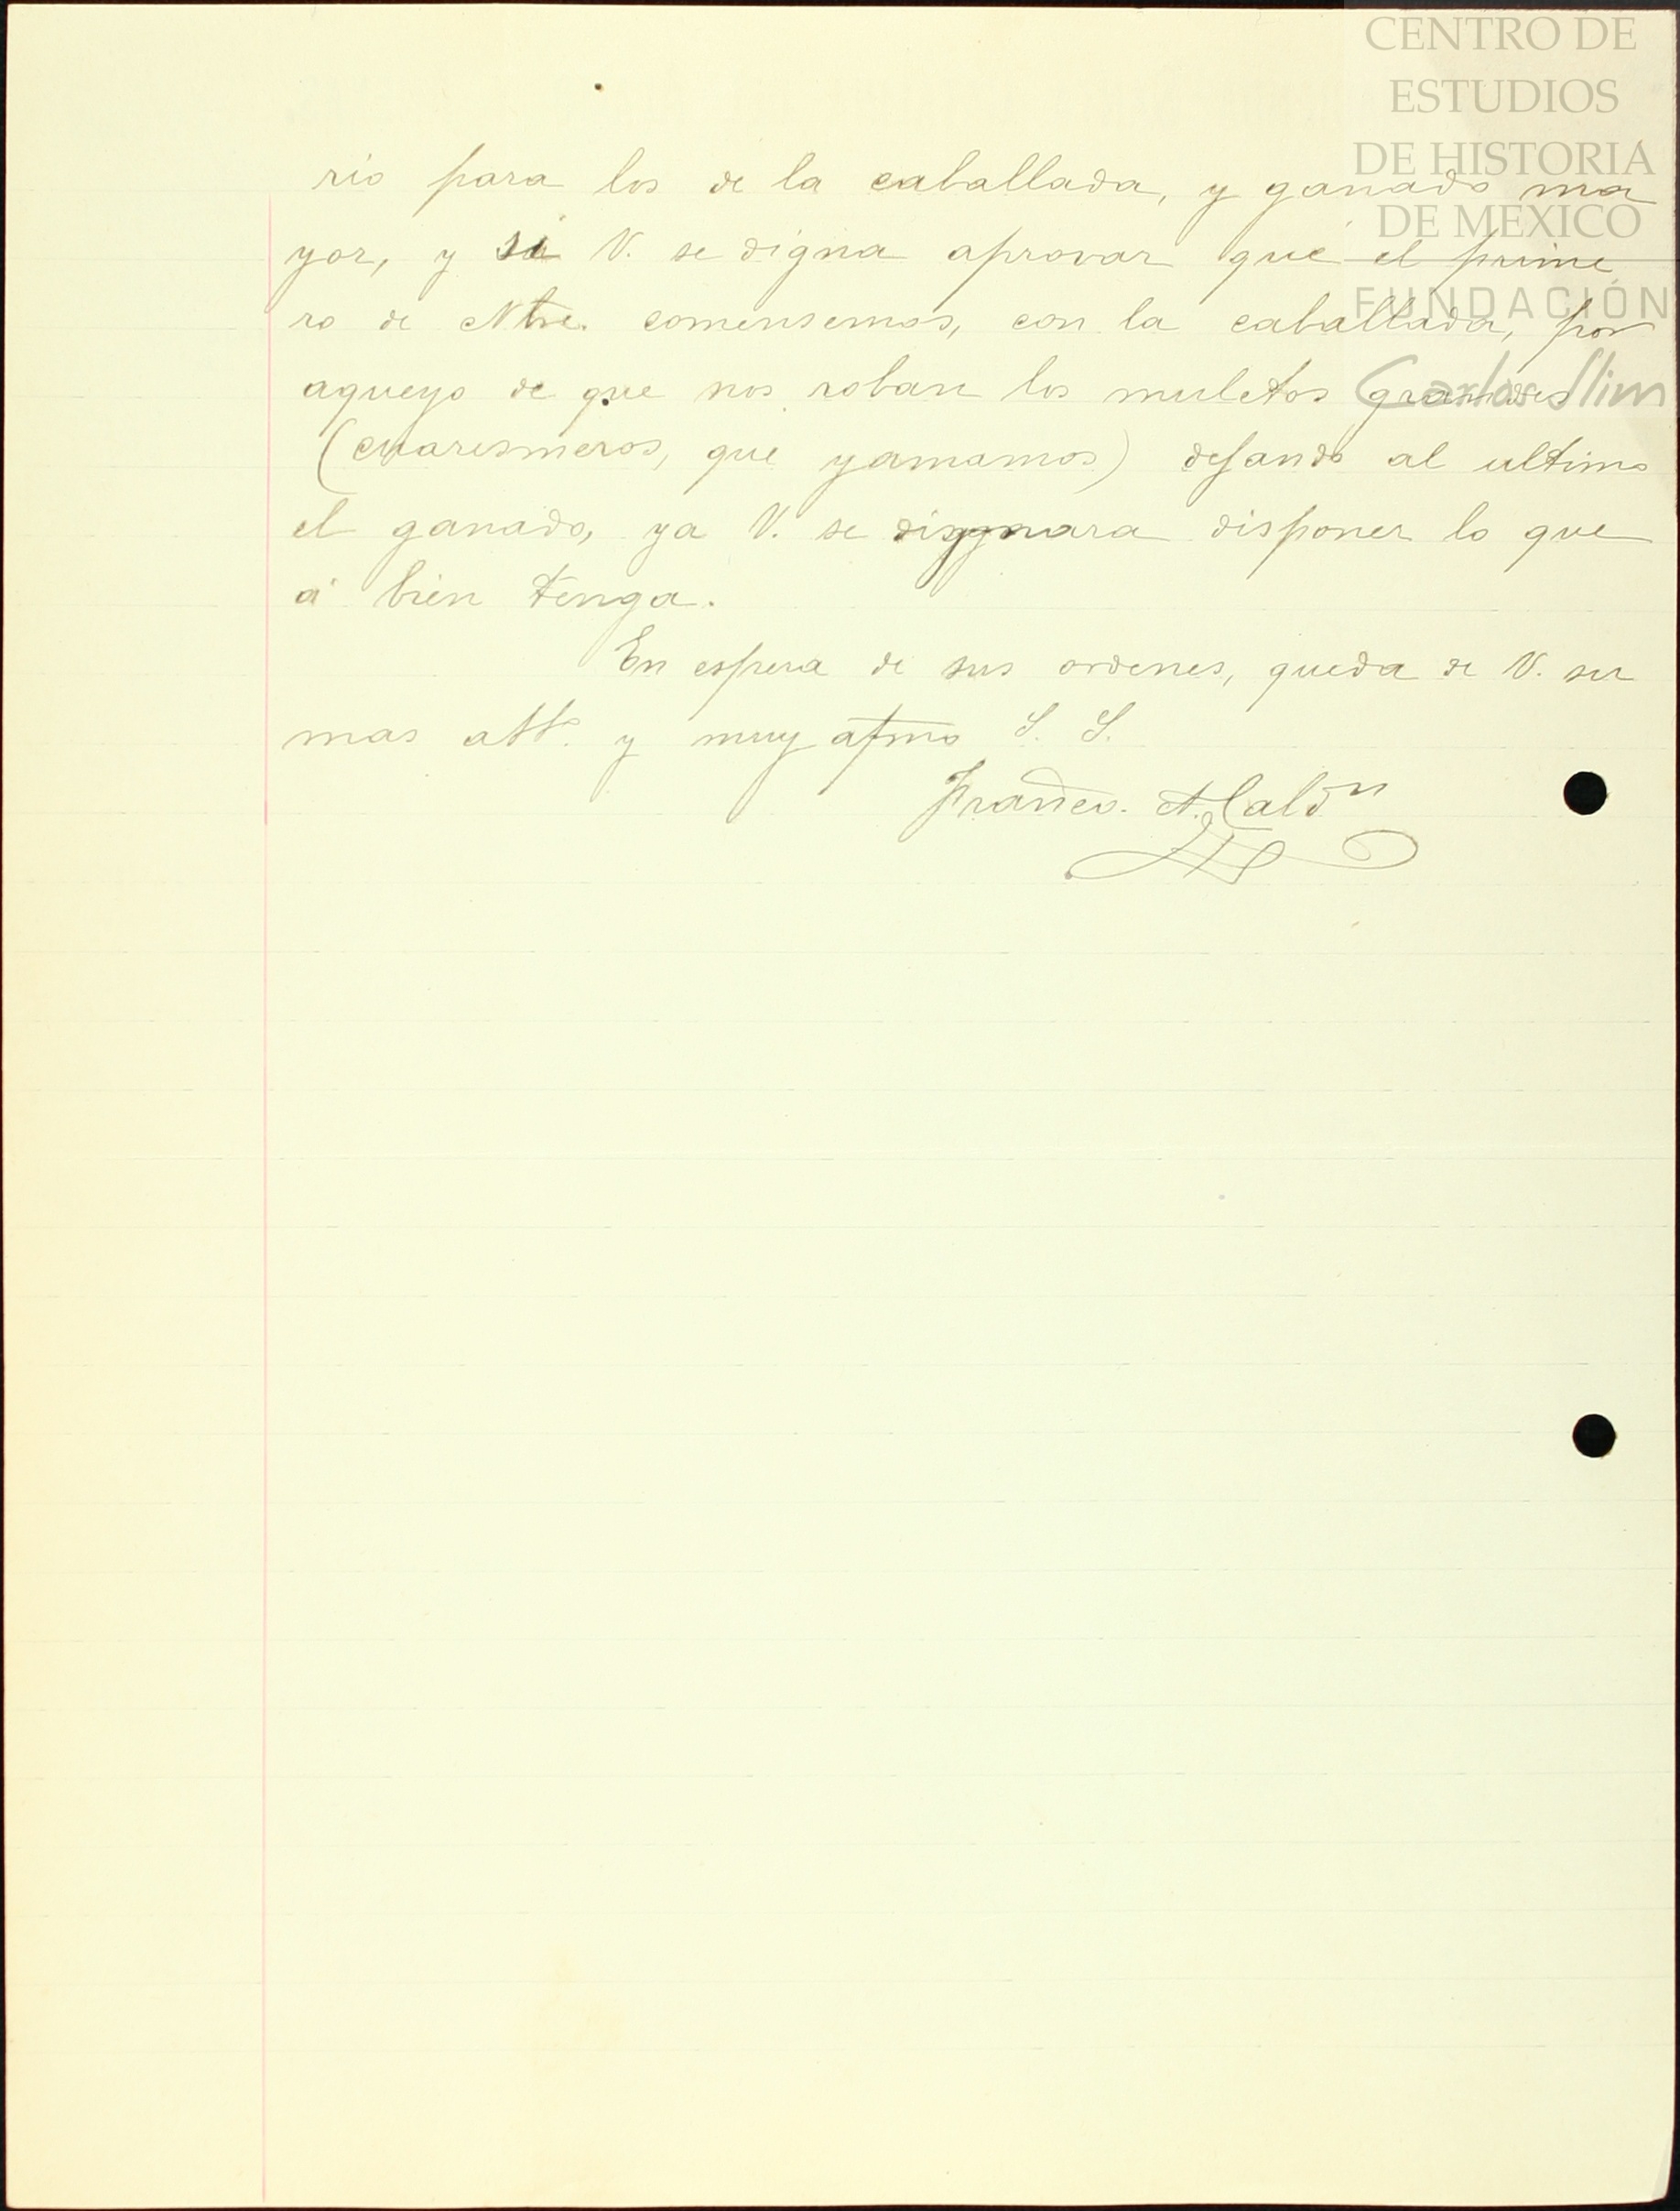 CENTRO DE
ESTUDIOS
DE HISTORIA
DE MÉXICO
FUNDACIÓN
Carlos Slim
rio para los de la caballada, y ganado ma
yor, y si V. se digna aprovar que el prime
ro de Nbre. comensemos, con la caballada, por
aqueyo de que nos roban los muletos grandes
(cuaresmeros, que yamamos) dejando al ultimo
el ganado, ya V. se dignara disponer lo que
á bien tenga.
En espera de sus ordenes, queda de V. su
mas atto. y muy afmo S. S.
Francco. A. Caldn